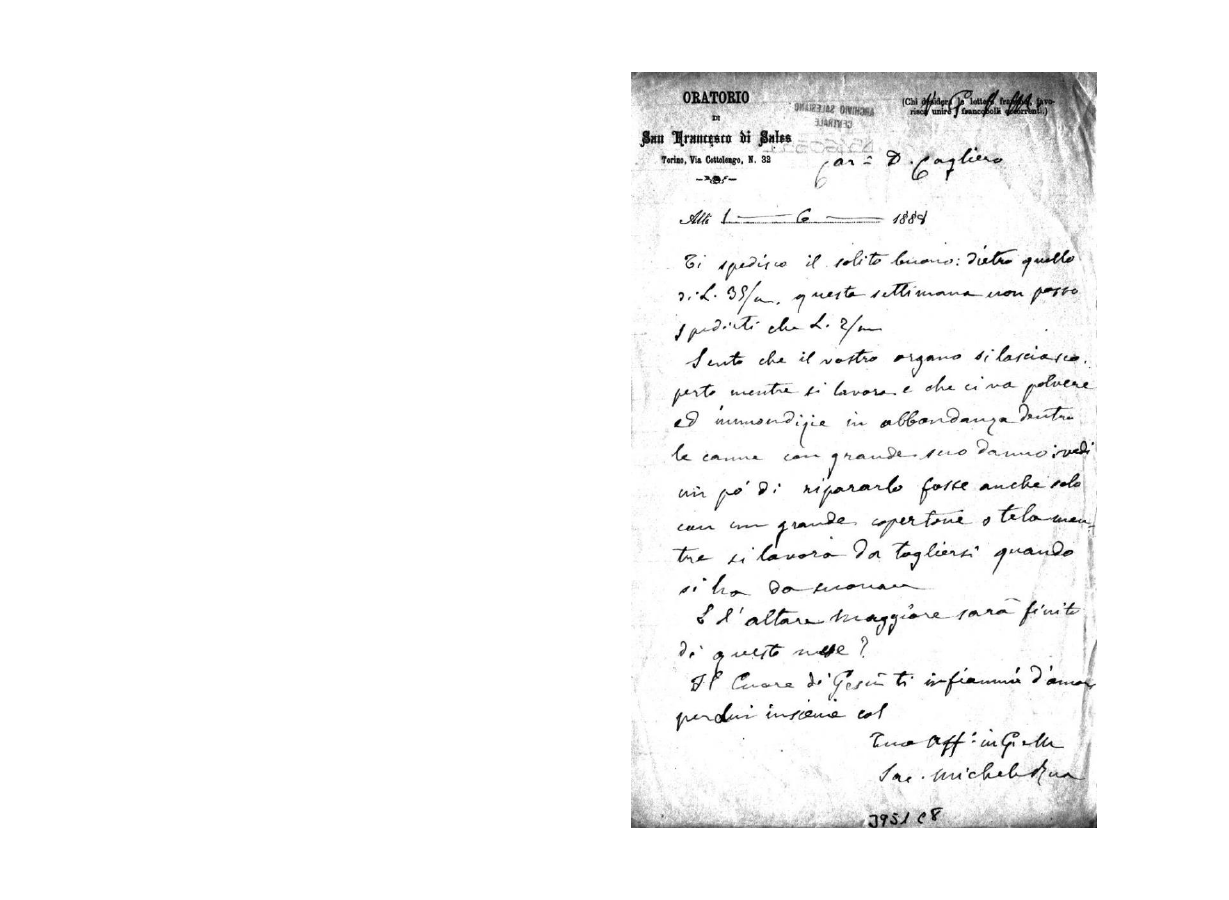 ORATORIO
DI
San Francesco di Sales
Torino, Via Cottolengo, N. 32
(Chi desidera le lettere franche, favo-
risca unire i francobolli occorrenti.)
ARCHIVIO SALESIANO
CENTRALE
Car.º D. Cagliero
Alli 1 — 6 — 1888
Ti spedisco il solito buono: dietro quello
di L. 35/m, questa settimana non posso
spedirti che L. 2/m
Sento che il vostro organo si lascia sco.
perto mentre si lavora e che ci va polvere
ed immondizie in abbondanza dentro
le canne con grande suo danno: vedi
un po' di ripararlo fosse anche solo
con un grande copertone o tela men-
tre si lavora da togliersi quando
si ha da suonare
E l'altare maggiore sarà finito
di questo mese?
Il Cuore di Gesù ti infiammi d'amor
per lui insieme col
Tuo Aff.º in G. e M.
Sac. Michele Rua
3951 C8